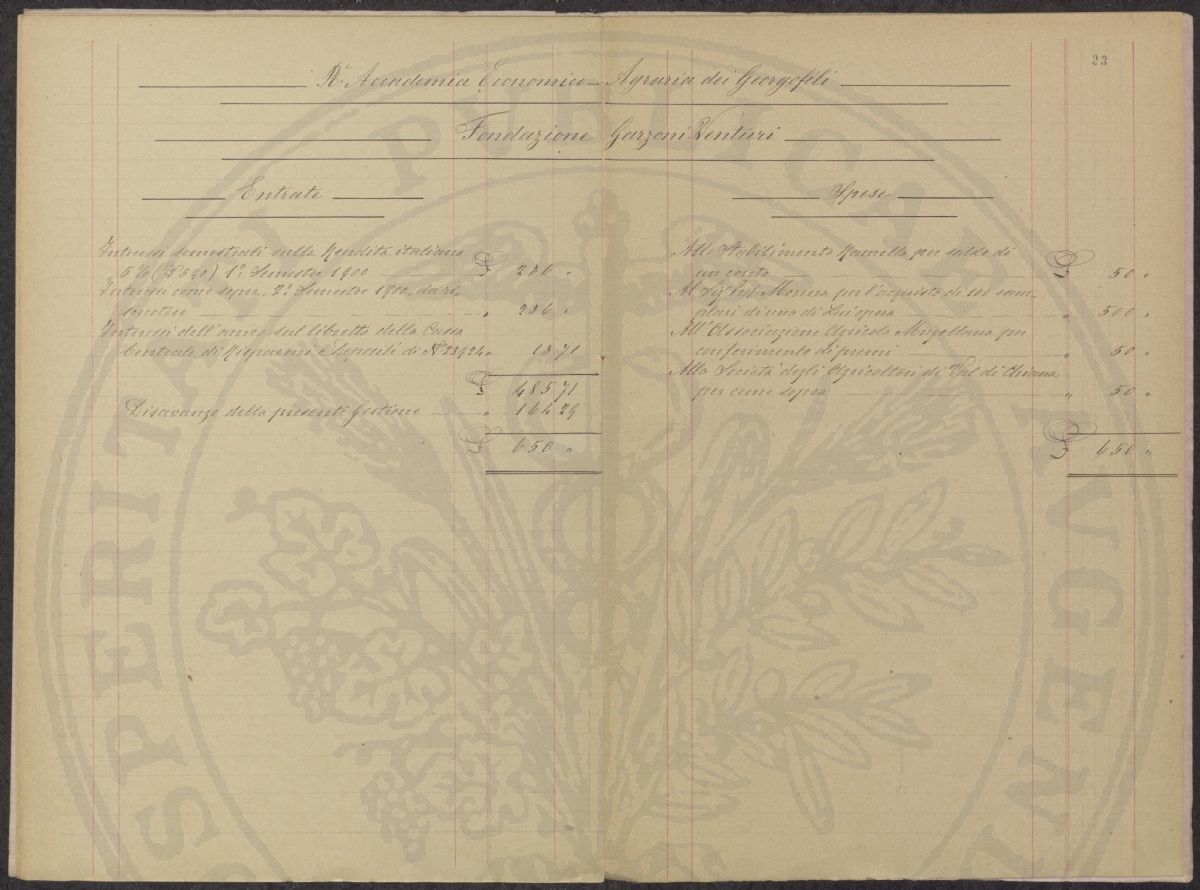 23
R.ª Accademia Economico-Agraria dei Georgofili
Fondazione Garzoni Venturi
Entrate
Interessi semestrali sulla Rendita italiana
5% (£ 590) 1º Semestre 1900 £ 236 "
Interessi come sopra, 2º Semestre 1900, da ri-
scuotere " 236 "
Interessi dell'anno sul libretto della Cassa
Centrale di Risparmi e Depositi di N. 23924 " 13 71
£ 485 71
Disavanzo della presente Gestione " 164 29
£ 650 "
Spese
Allo Stabilimento Ramella per saldo di
un conto £ 50 "
Al Sig. Prof. Morena per l'acquisto di 100 esem-
plari di una di Lui opera " 500 "
All'Associazione Agricola Mugellana per
conferimento di premi " 50 "
Alla Società degli Agricoltori di Val di Chiana
per come sopra " 50 "
£ 650 "
SPERITATI PUBLICAE AVGEN